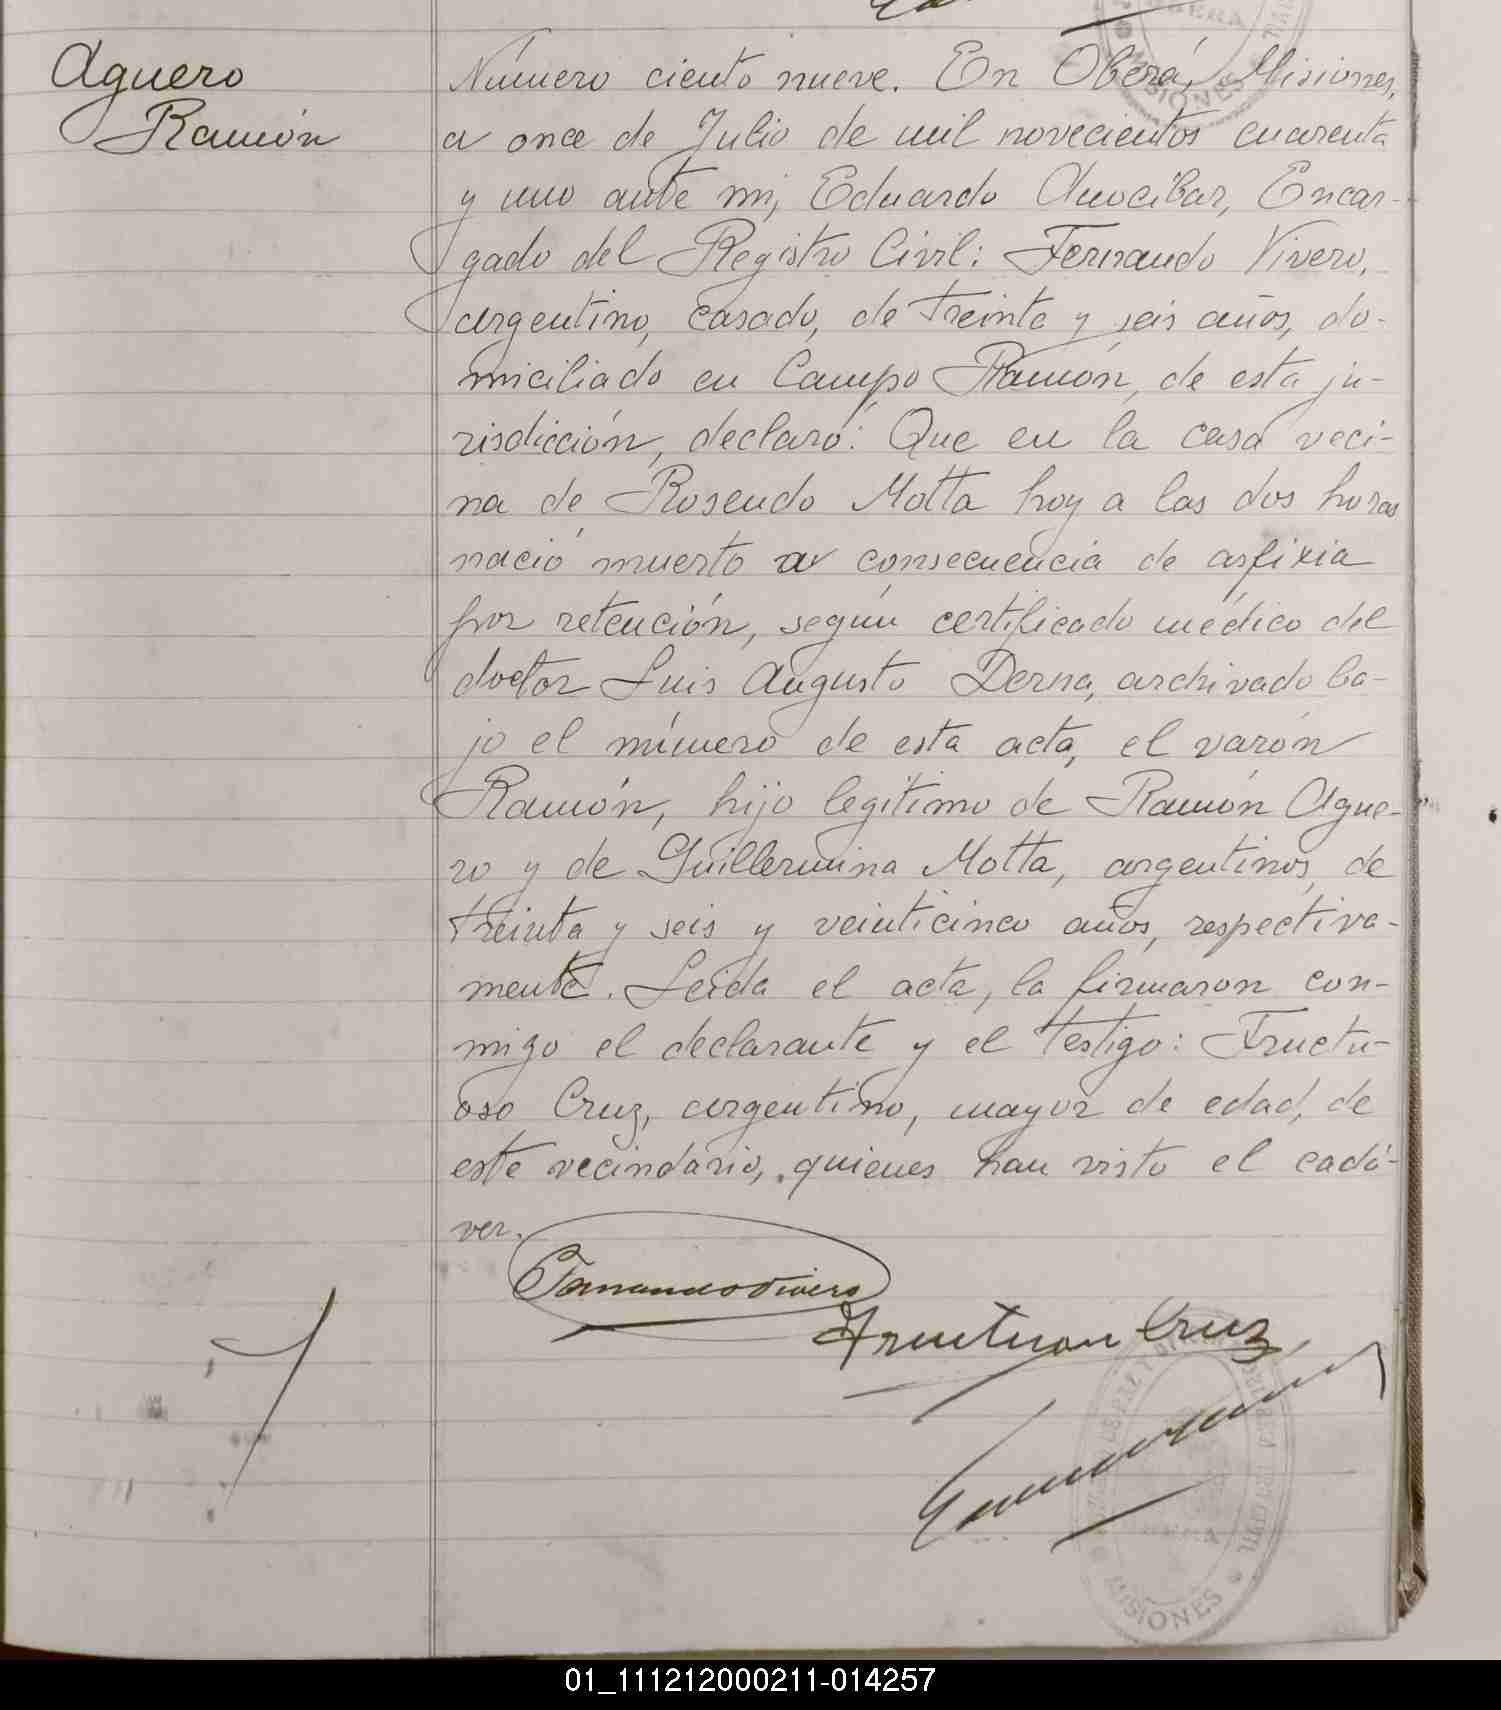 Aguero
Ramón
Número ciento nueve. En Oberá, Misiones,
a once de Julio de mil novecientos cuarenta
y uno ante mi, Eduardo Anocibar, Encar-
gado del Registro Civil: Fernando Vivero,
argentino, casado, de treinta y seis años, do-
miciliado en Campo Ramón, de esta ju-
risdicción, declaró: Que en la casa veci-
na de Rosendo Motta hoy a las dos horas
nació muerto a consecuencia de asfixia
por retención, según certificado médico del
doctor Luis Augusto Derna, archivado ba-
jo el número de esta acta, el varón
Ramón, hijo legítimo de Ramón Ague-
ro y de Guillermina Motta, argentinos, de
treinta y seis y veinticinco años, respectiva-
mente. Leida el acta, la firmaron con-
migo el declarante y el testigo: Fructu-
oso Cruz, argentino, mayor de edad, de
este vecindario, quienes han visto el cadá-
ver.
Fernando Vivero
Cruz
MISIONES
01_111212000211-014257